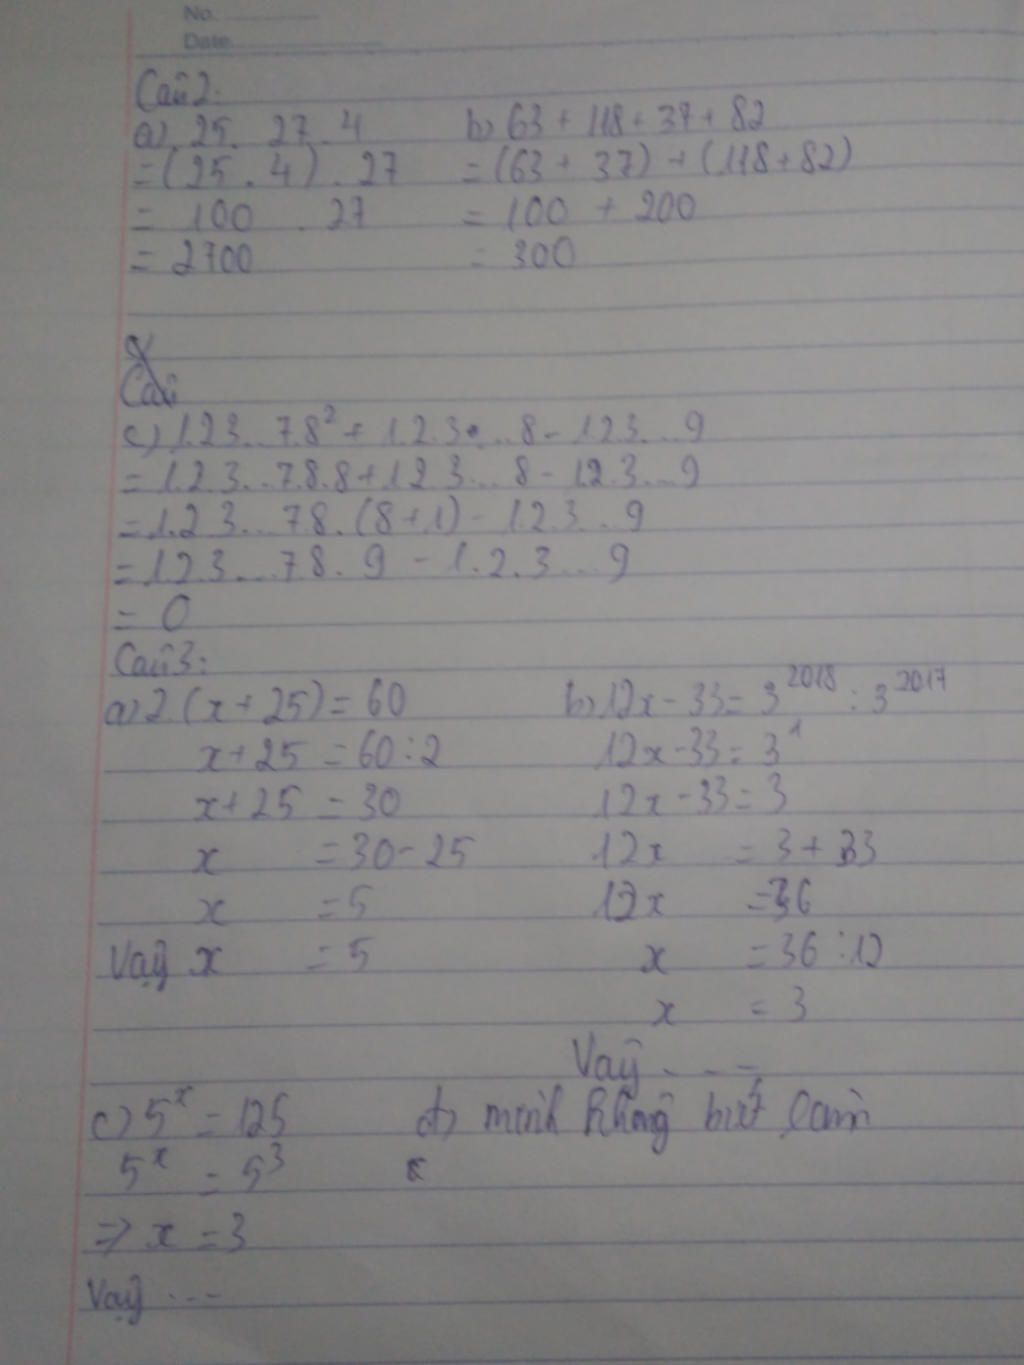 No.
Date
Câu 2:
a) 25. 27. 4 b) 63 + 118 + 37 + 82
= (25 . 4) . 27 = (63 + 37) + (118 + 82)
= 100 . 27 = 100 + 200
= 2700 = 300
Câu
c) 1.2.3...7.8² + 1.2.3...8 - 1.2.3...9
= 1.2.3...7.8.8 + 1.2.3...8 - 1.2.3...9
= 1.2.3...7.8.(8+1) - 1.2.3...9
= 1.2.3...7.8.9 - 1.2.3...9
= 0
Câu 3:
a) 2.(x + 25) = 60 b) 12x - 33 = 3²⁰¹⁸ : 3²⁰¹⁷
x + 25 = 60 : 2 12x - 33 = 3¹
x + 25 = 30 12x - 33 = 3
x = 30 - 25 12x = 3 + 33
x = 5 12x = 36
Vậy x = 5 x = 36 : 12
x = 3
Vậy ....
c) 5ˣ = 125 d) mình không biết làm
5ˣ = 5³
=> x = 3
Vậy ...